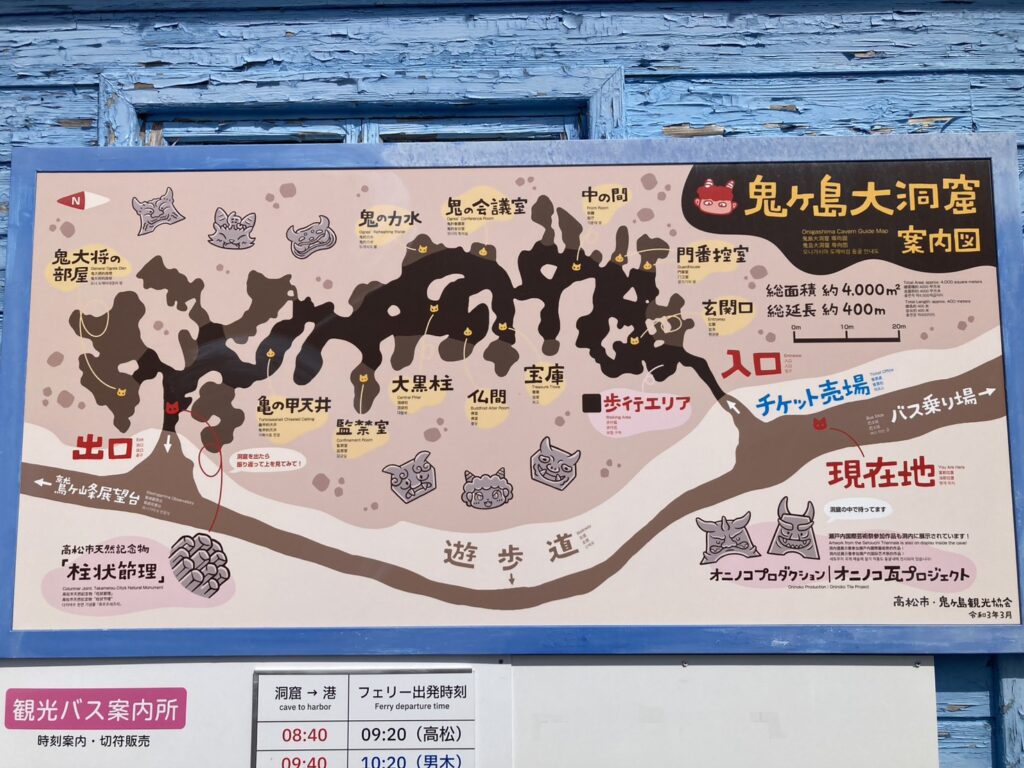 N
鬼ヶ島大洞窟
案内図
Onigashima Cavern Guide Map
総面積 約4.000m²
Total Area: approx. 4,000 square meters
総延長 約400m
Total Length: approx. 400 meters
0m 10m 20m
中の間
Front Room
鬼の会議室
Ogres' Conference Room
鬼の力水
Ogres' Refreshing Water
鬼大将の
部屋
General Ogre's Den
門番控室
Guardhouse
玄関口
Entryway
入口
Entrance
チケット売場
Ticket Office
バス乗り場
Bus Stop
現在地
You Are Here
歩行エリア
Walking Area
宝庫
Treasure Trove
仏間
Buddhist Altar Room
大黒柱
Central Pillar
監禁室
Confinement Room
亀の甲天井
Tortoiseshell Chiseled Ceiling
出口
Exit
洞窟を出たら
振り返って上を見てみて!
鷲ヶ峰展望台
Washigamine Observatory
遊歩道
高松市天然記念物
「柱状節理」
Columnar Joint, Takamatsu City's Natural Monument
洞窟の中で待ってます
瀬戸内国際芸術祭参加作品も洞内に展示されています!
Artwork from the Setouchi Triennale is also on display inside the cave!
オニノコプロダクション|オニノコ瓦プロジェクト
Oninoko Production | Oninoko Tile Project
高松市・鬼ヶ島観光協会
令和3年3月
観光バス案内所
時刻案内・切符販売
洞窟 → 港 フェリー出発時刻
cave to harbor Ferry departure time
08:40 09:20 (高松)
09:40 10:20 (男木)